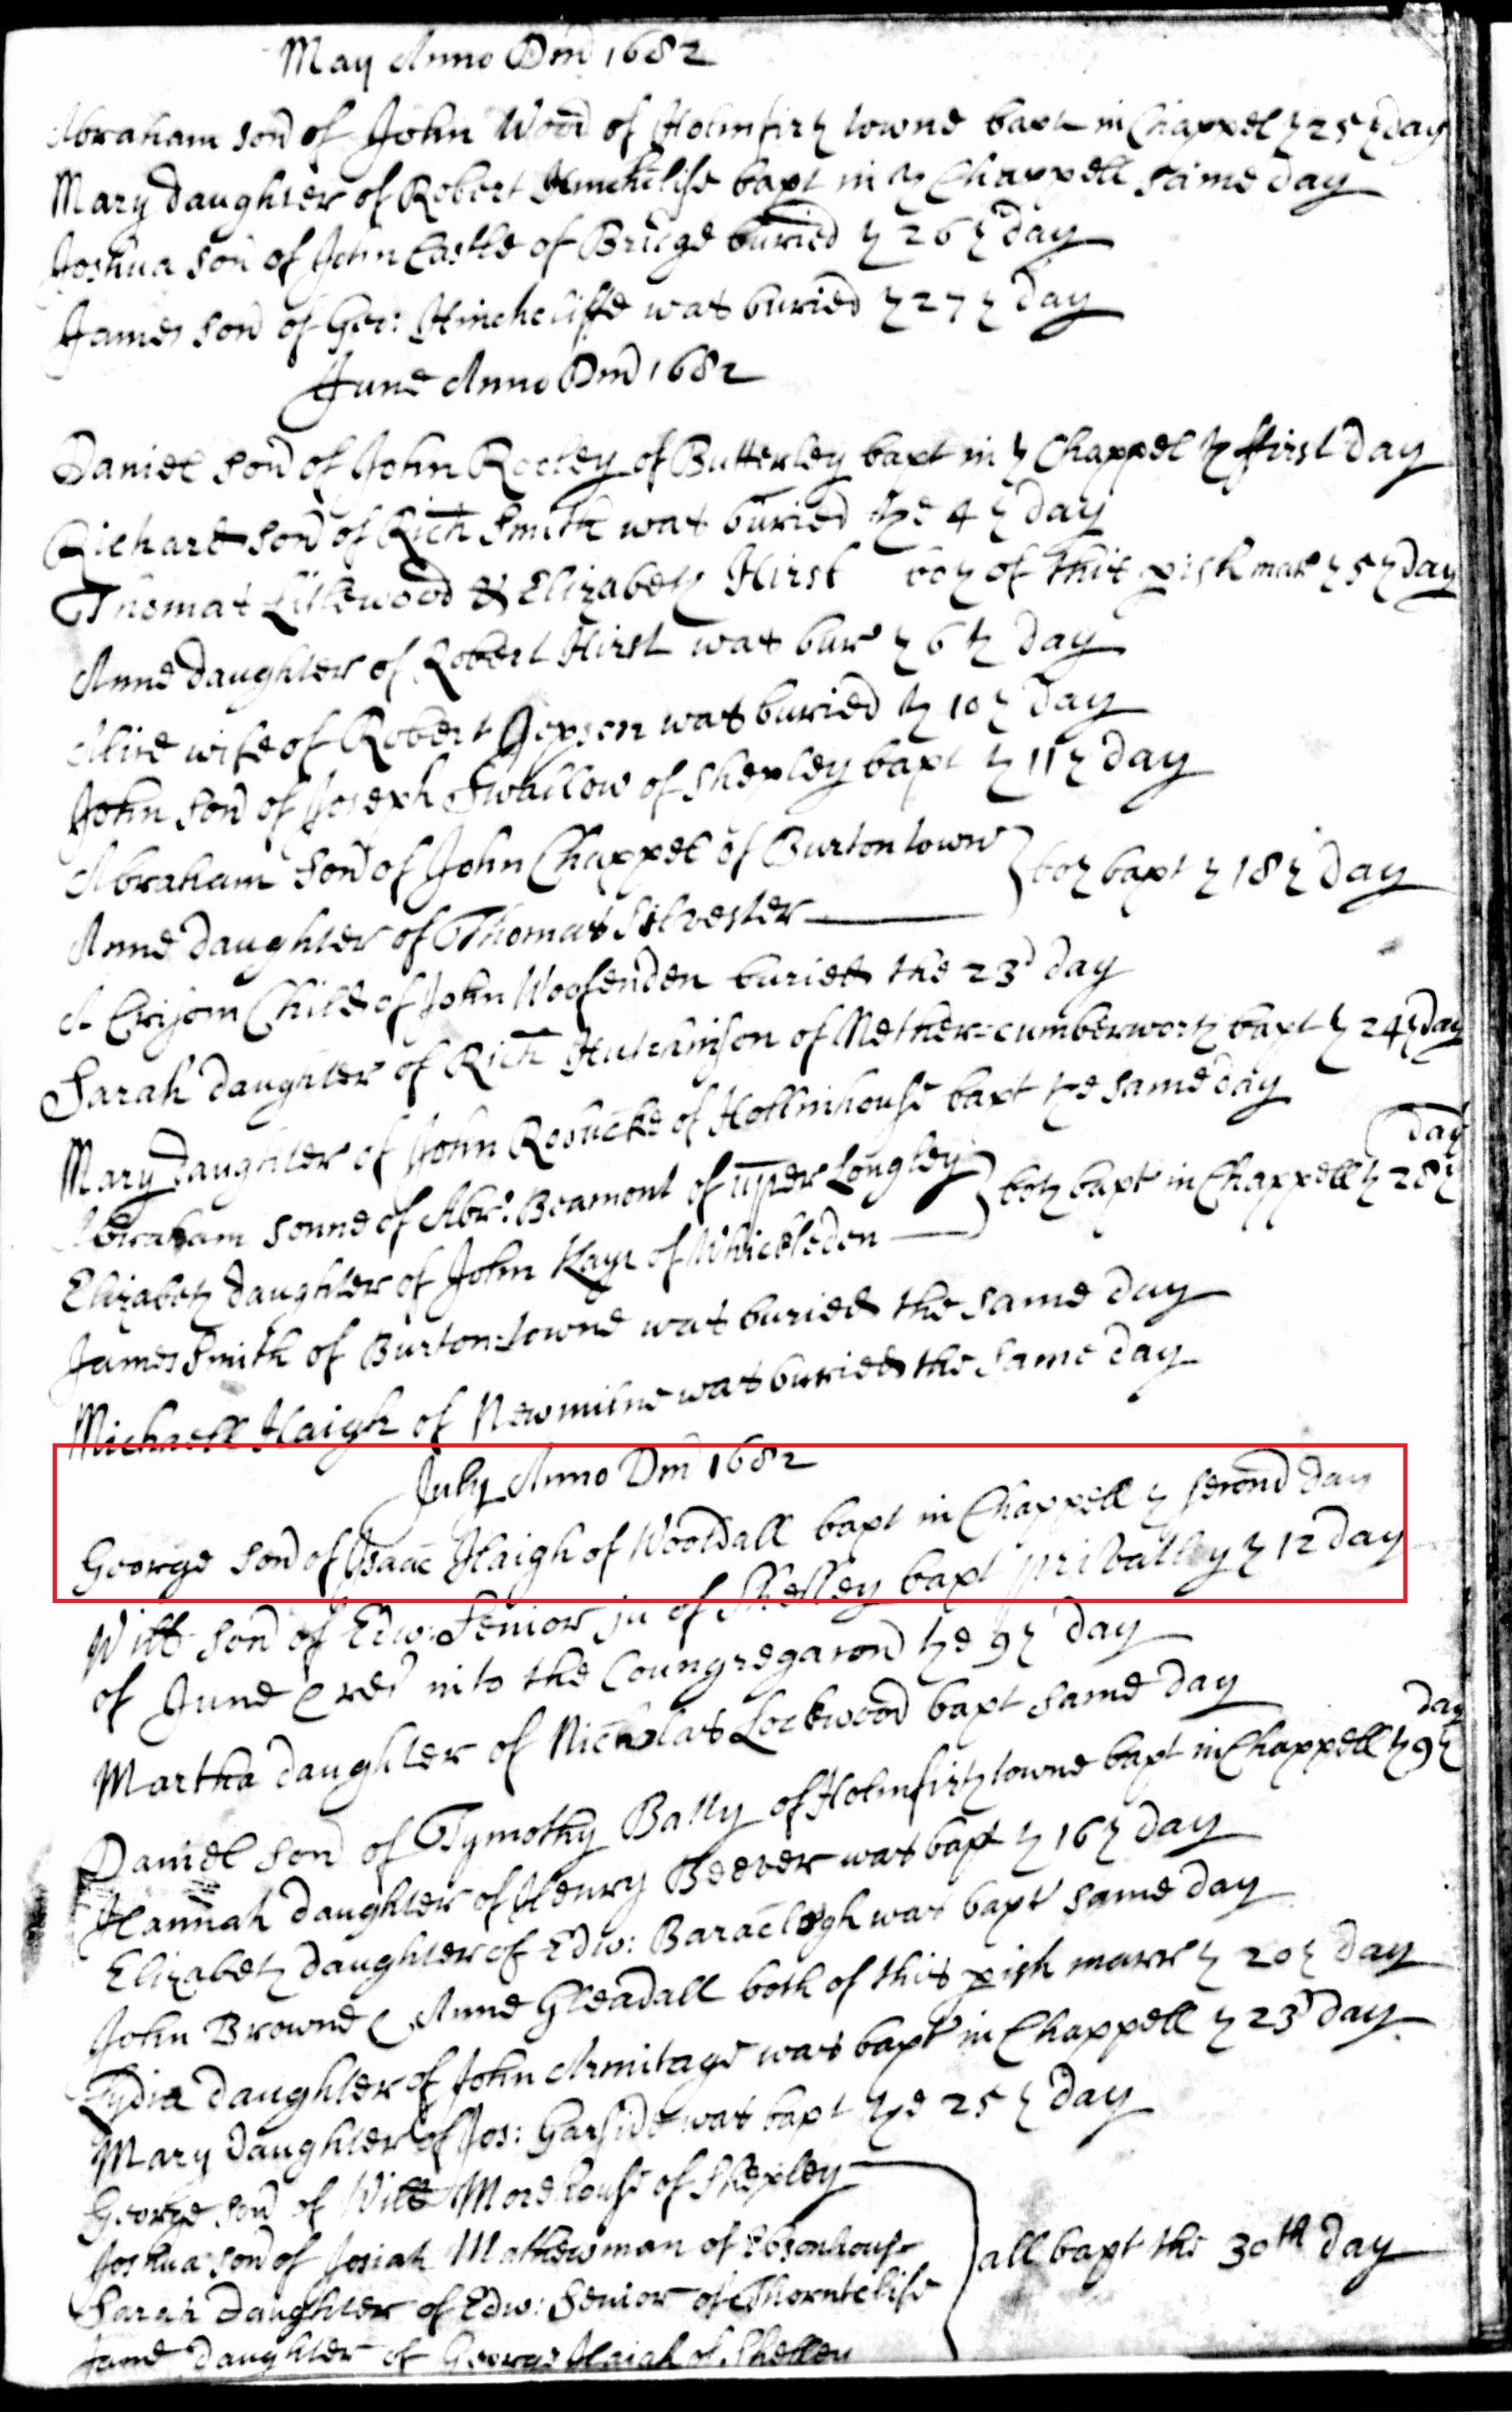 May Anno Dm̄ 1682
Abraham son of John Wood of Holmfirth towne bapt in Chappel ye 25th day
Mary daughter of Robert Hinchclife bapt in ye Chappell same day
Joshua son of John Castle of Bridge buried ye 26th day
James son of Geo: Hinchcliffe was buried ye 27th day
June Anno Dm̄ 1682
Daniel son of John Rooley of Butterley bapt in ye Chappel ye ffirst day
Richard son of Rich Smith was buried the 4th day
Thomas Littlewood & Elizabeth Hirst both of this pish mar ye 5th day
Anne daughter of Robert Hirst was bur ye 6th day
Alice wife of Robert Jepson was buried ye 10th day
John son of Joseph Swallow of Shepley bapt ye 11th day
Abraham son of John Chappel of Burton towne
both bapt ye 18th day
Anne daughter of Thomas Silvester
A Crisom Child of John Woofenden buried the 23d day
Sarah daughter of Rich Hutchinson of Nether=cumberworth bapt ye 24th day
Mary daughter of John Roobucke of Hollinhouse bapt the same day
Abraham sonne of Abr: Beamont of upper Longley
both bapt in Chappell ye 28th day
Elizabeth daughter of John Kaye of Whickleden
James Smith of Burton=towne was buried the same day
Michaell Haigh of Newmilne was buried the same day
July Anno Dm̄ 1682
George son of Isaac Haigh of Wooldall bapt in Chappell ye second day
Will son of Edw: Senior ju of Shelley bapt privatley ye 12 day
of June & red into the Coungregacond the 9th day
Martha daughter of Nicholas Lockwood bapt same day
Daniel son of Tymothy Batty of Holmfirth towne bapt in Chappell ye 9th day
Hannah daughter of Henry Beever was bapt ye 16th day
Elizabeth daughter of Edw: Baraclogh was bapt same day
John Browne & Anne Gleadall both of this pish marr ye 20th day
Lydia daughter of John Armitage was bapt in Chappell ye 23d day
Mary daughter of Jos: Garside was bapt the 25th day
George son of Will Morehouse of Shepley
Joshua son of Josiah Mathewman of Ebsonhouse
all bapt the 30th day
Sarah daughter of Edw: Senior of Thorntclife
Jane daughter of George Haigh of Shelley